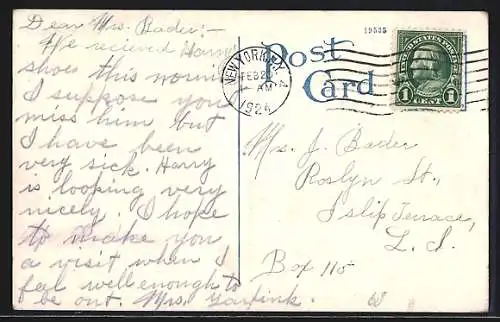 Dear Mrs. Bader:-
We recieved Harry
shoes this worm
I suppose you
miss him but
I have been
very sick. Harry
is looping very
nicely. I hope
to make you
a visit when I
feel well enough to
be out. Mrs.
19505
Post
Card
NEW YORK, N.Y.
FEB 26
AM
1924
UNITED STATES POSTAGE
1 CENT 1
Mrs. J. Bader
Roslyn St.,
Islip Terrace,
L. I.
Box 115